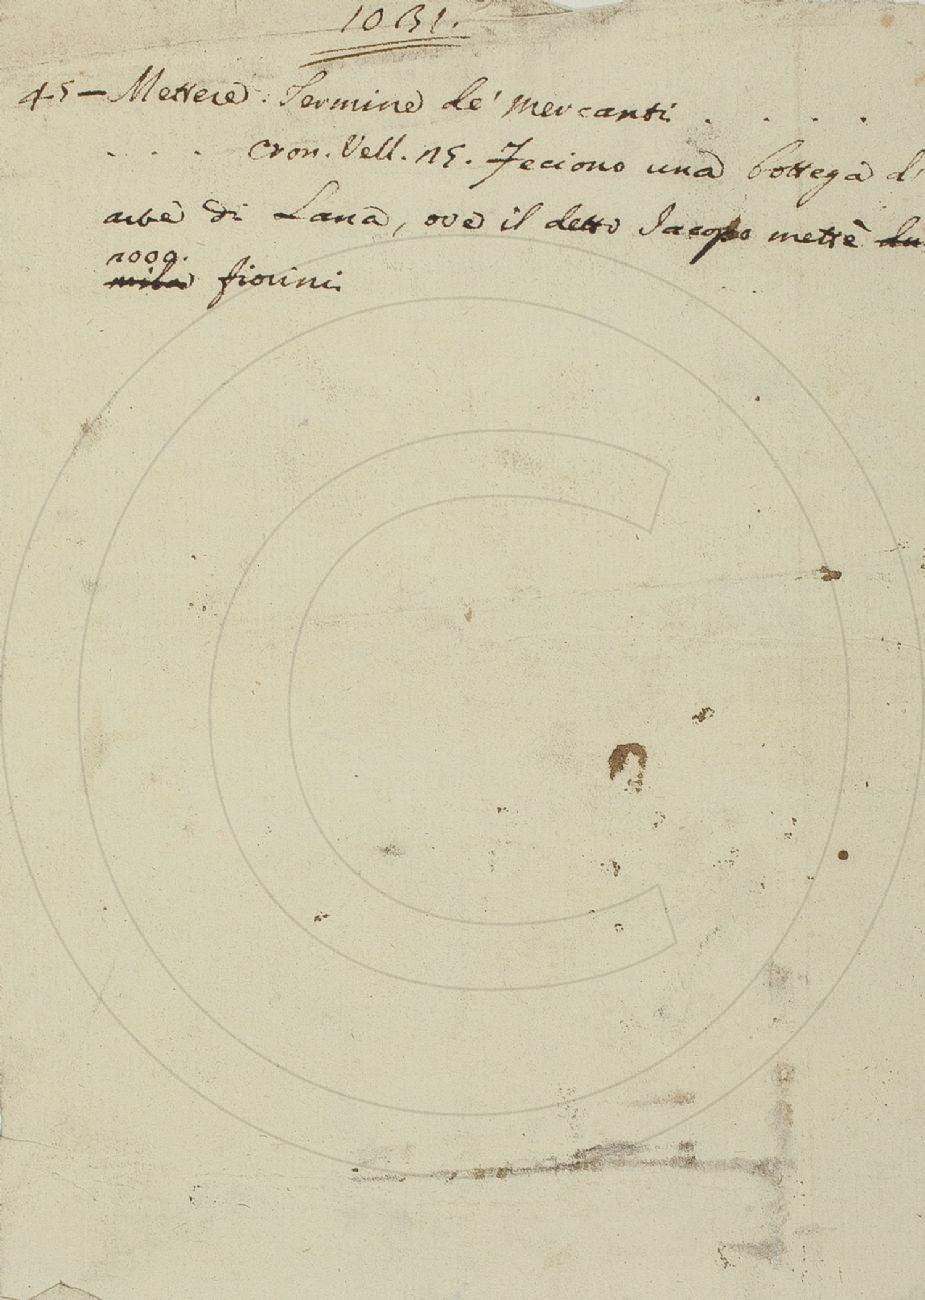 1031.
45 - Mettere. Termine de' mercanti . . . .
. . . Cron. Vell. 15. Feciono una bottega d'
arte di Lana, ove il detto Iacopo mettè du
2000.
mila fiorini